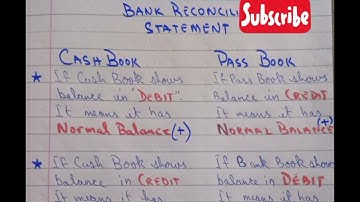 BANK RECONCILI
Subscribe
STATEMENT
CASH BOOK
PASS BOOK
★ If Cash Book shows
balance in "DEBIT".
It means it has
NORMAL BALANCE (+)
If Pass Book shows
Balance in CREDIT
It means it has
NORMAL BALANCE (+)
★ If Cash Book shows
balance in CREDIT
It means it has
If Bank Book show
balance in DEBIT
It means it has